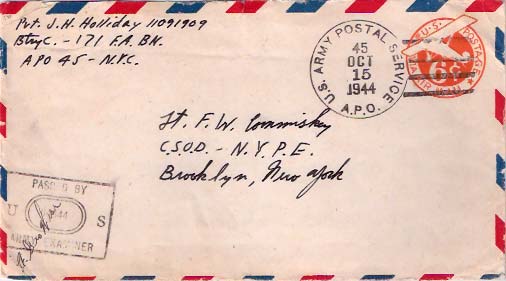 Pvt. J. H. Holliday 11091909
Btry C. - 171 F.A. BN.
APO 45 - N.Y.C.
U.S. ARMY POSTAL SERVICE
45
OCT
15
1944
A.P.O.
U.S. POSTAGE
6¢
VIA AIR MAIL
Lt. F. W. Commiskey
C.S.O.D. - N.Y.P.E.
Brooklyn, New York
PASSED BY
U S
ARMY EXAMINER